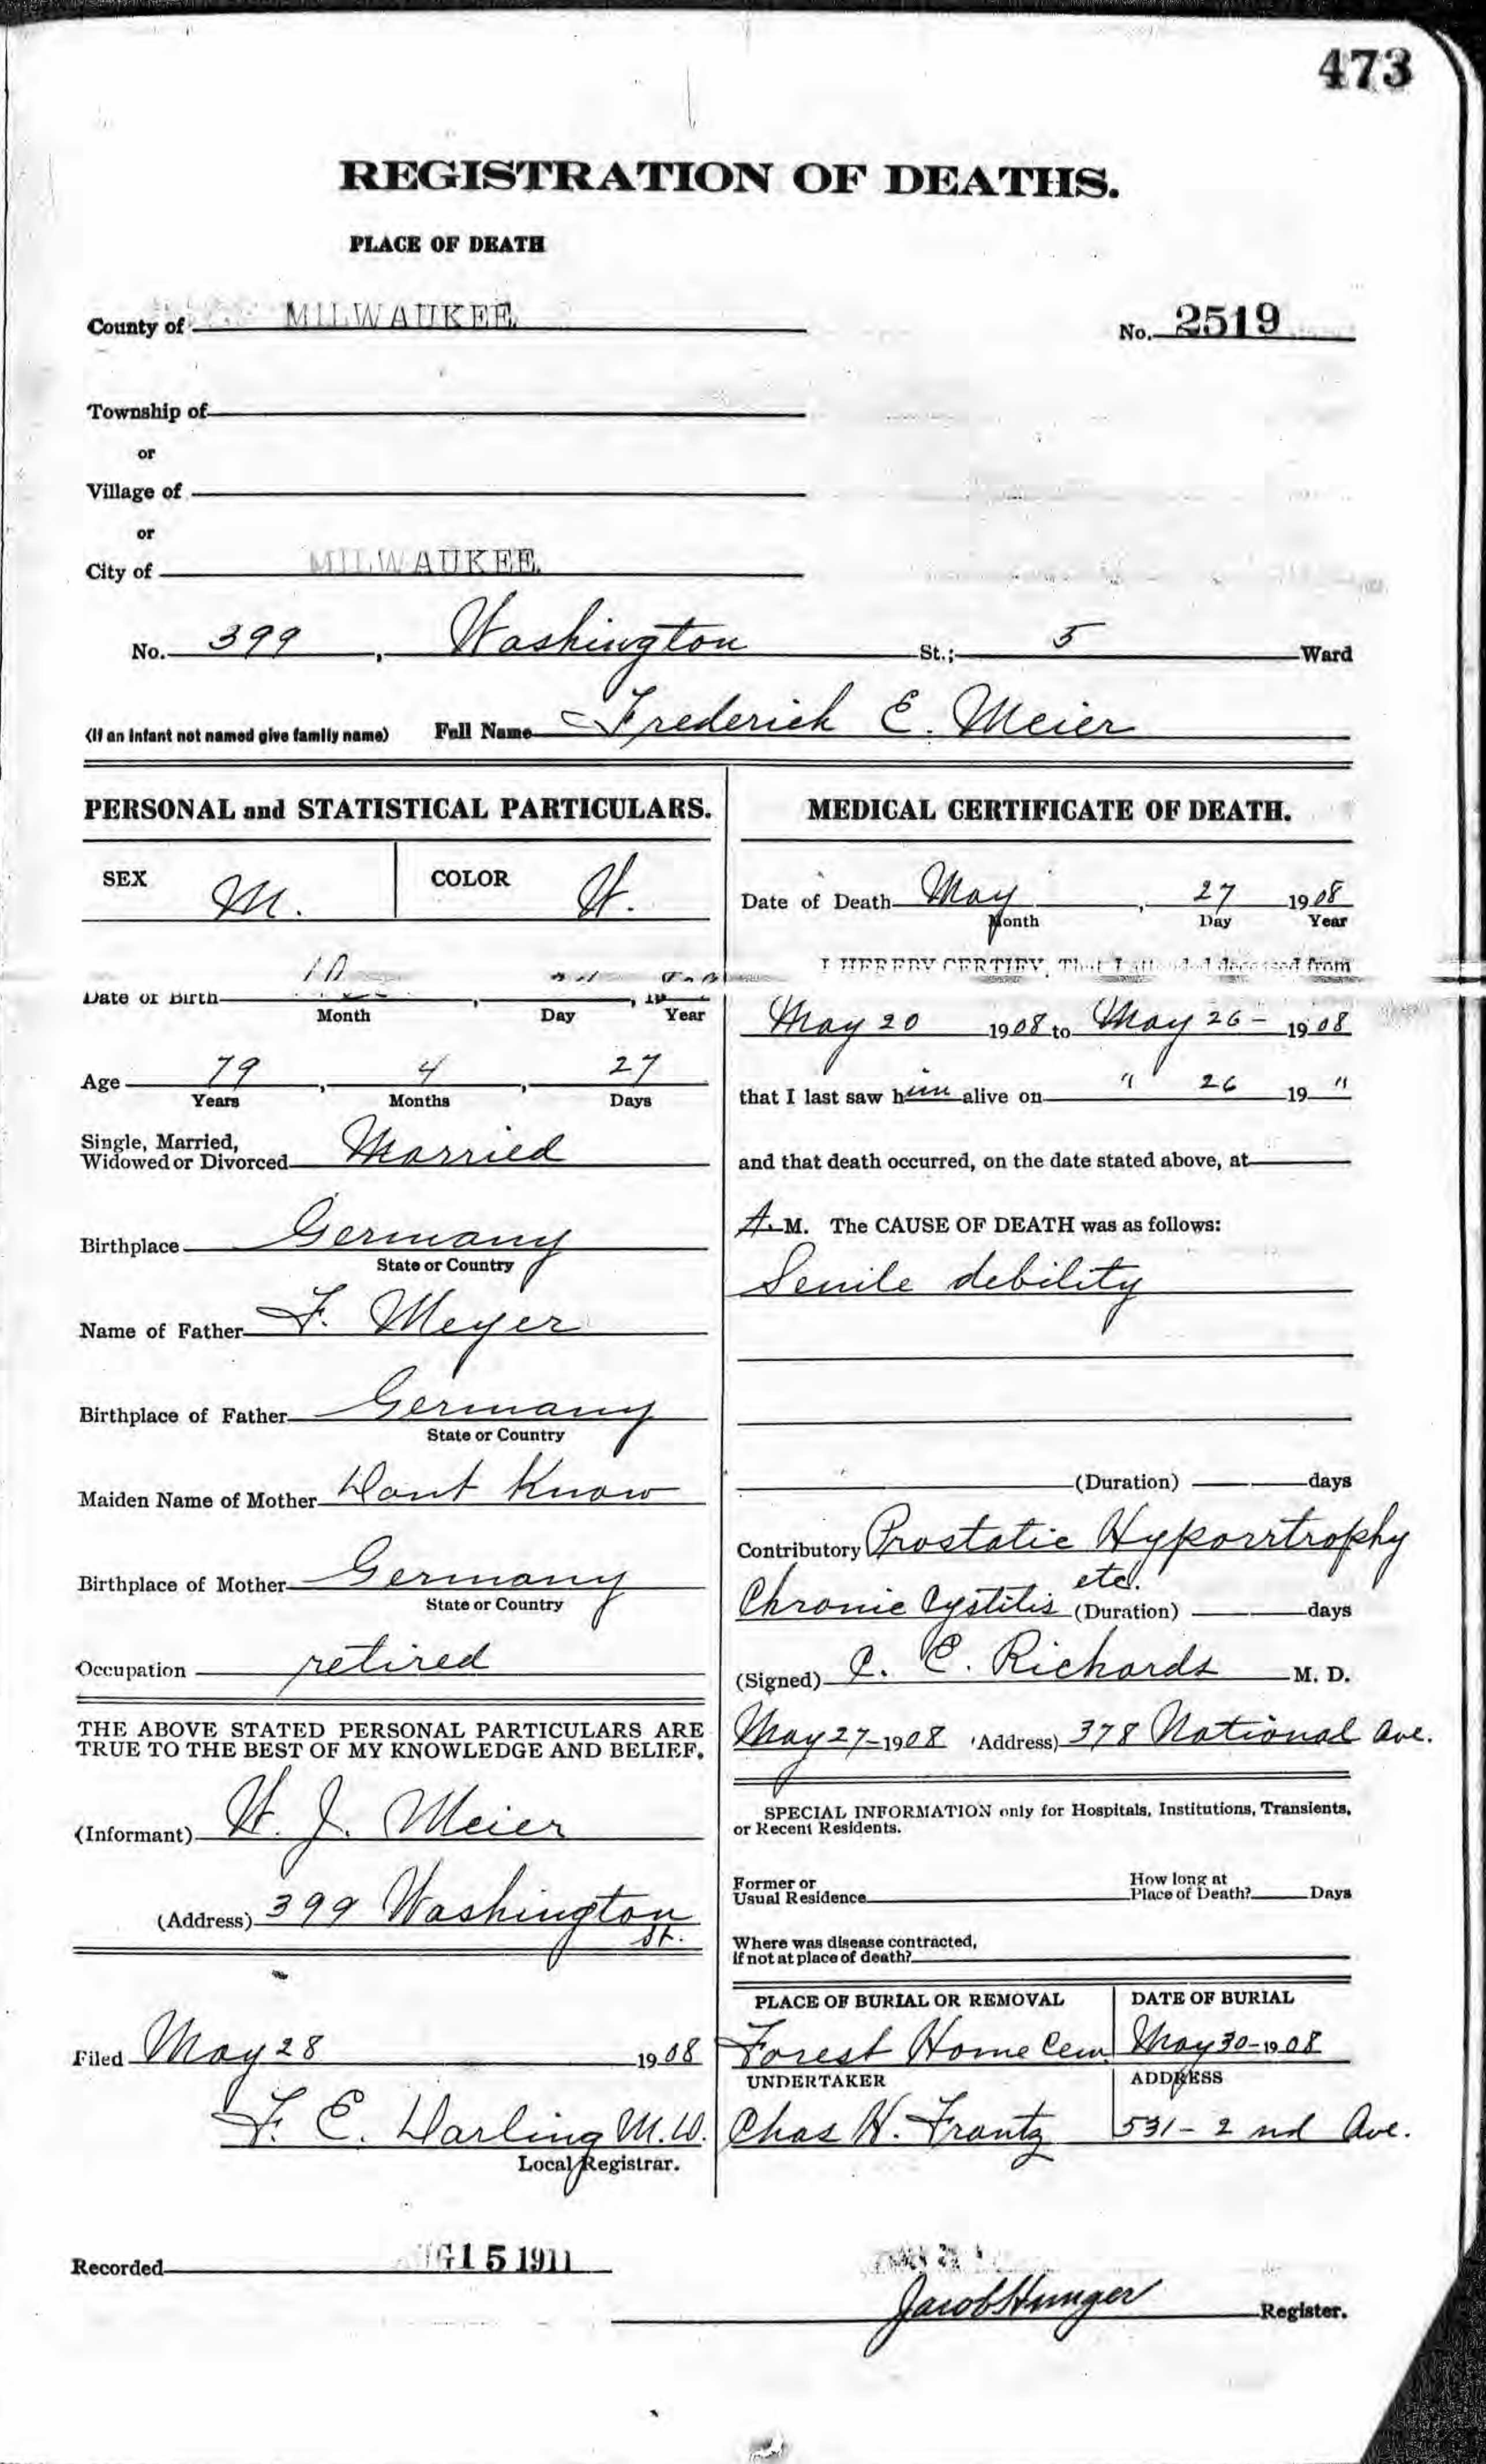 473
REGISTRATION OF DEATHS.
PLACE OF DEATH
County of MILWAUKEE.
No. 2519
Township of
or
Village of
or
City of MILWAUKEE.
No. 399, Washington St.; 5 Ward
(If an infant not named give family name) Full Name Frederick E. Meier
PERSONAL and STATISTICAL PARTICULARS.
SEX M. COLOR W.
Date of Birth
Month Day Year
Age 79, 4, 27
Years Months Days
Single, Married,
Widowed or Divorced Married
Birthplace Germany
State or Country
Name of Father F. Meyer
Birthplace of Father Germany
State or Country
Maiden Name of Mother Dont Know
Birthplace of Mother Germany
State or Country
Occupation retired
THE ABOVE STATED PERSONAL PARTICULARS ARE
TRUE TO THE BEST OF MY KNOWLEDGE AND BELIEF.
(Informant) W. J. Meier
(Address) 399 Washington
St.
Filed May 28 1908
F. E. Darling M.D.
Local Registrar.
MEDICAL CERTIFICATE OF DEATH.
Date of Death May, 27 1908
Month Day Year
I HEREBY CERTIFY, That I attended deceased from
May 20 1908 to May 26 - 1908
that I last saw him alive on " 26 19 "
and that death occurred, on the date stated above, at
A. M. The CAUSE OF DEATH was as follows:
Senile debility
(Duration) days
Contributory Prostatic Hyporrtrophy
etc.
Chronic Cystitis (Duration) days
(Signed) C. C. Richards M. D.
May 27-1908 (Address) 378 National Ave.
SPECIAL INFORMATION only for Hospitals, Institutions, Transients,
or Recent Residents.
Former or
Usual Residence
How long at
Place of Death? Days
Where was disease contracted,
if not at place of death?
PLACE OF BURIAL OR REMOVAL DATE OF BURIAL
Forest Home Cem. May 30-1908
UNDERTAKER ADDRESS
Chas H. Frantz 531 - 2nd Ave.
Recorded AUG 15 1911
Jacob Hunger Register.